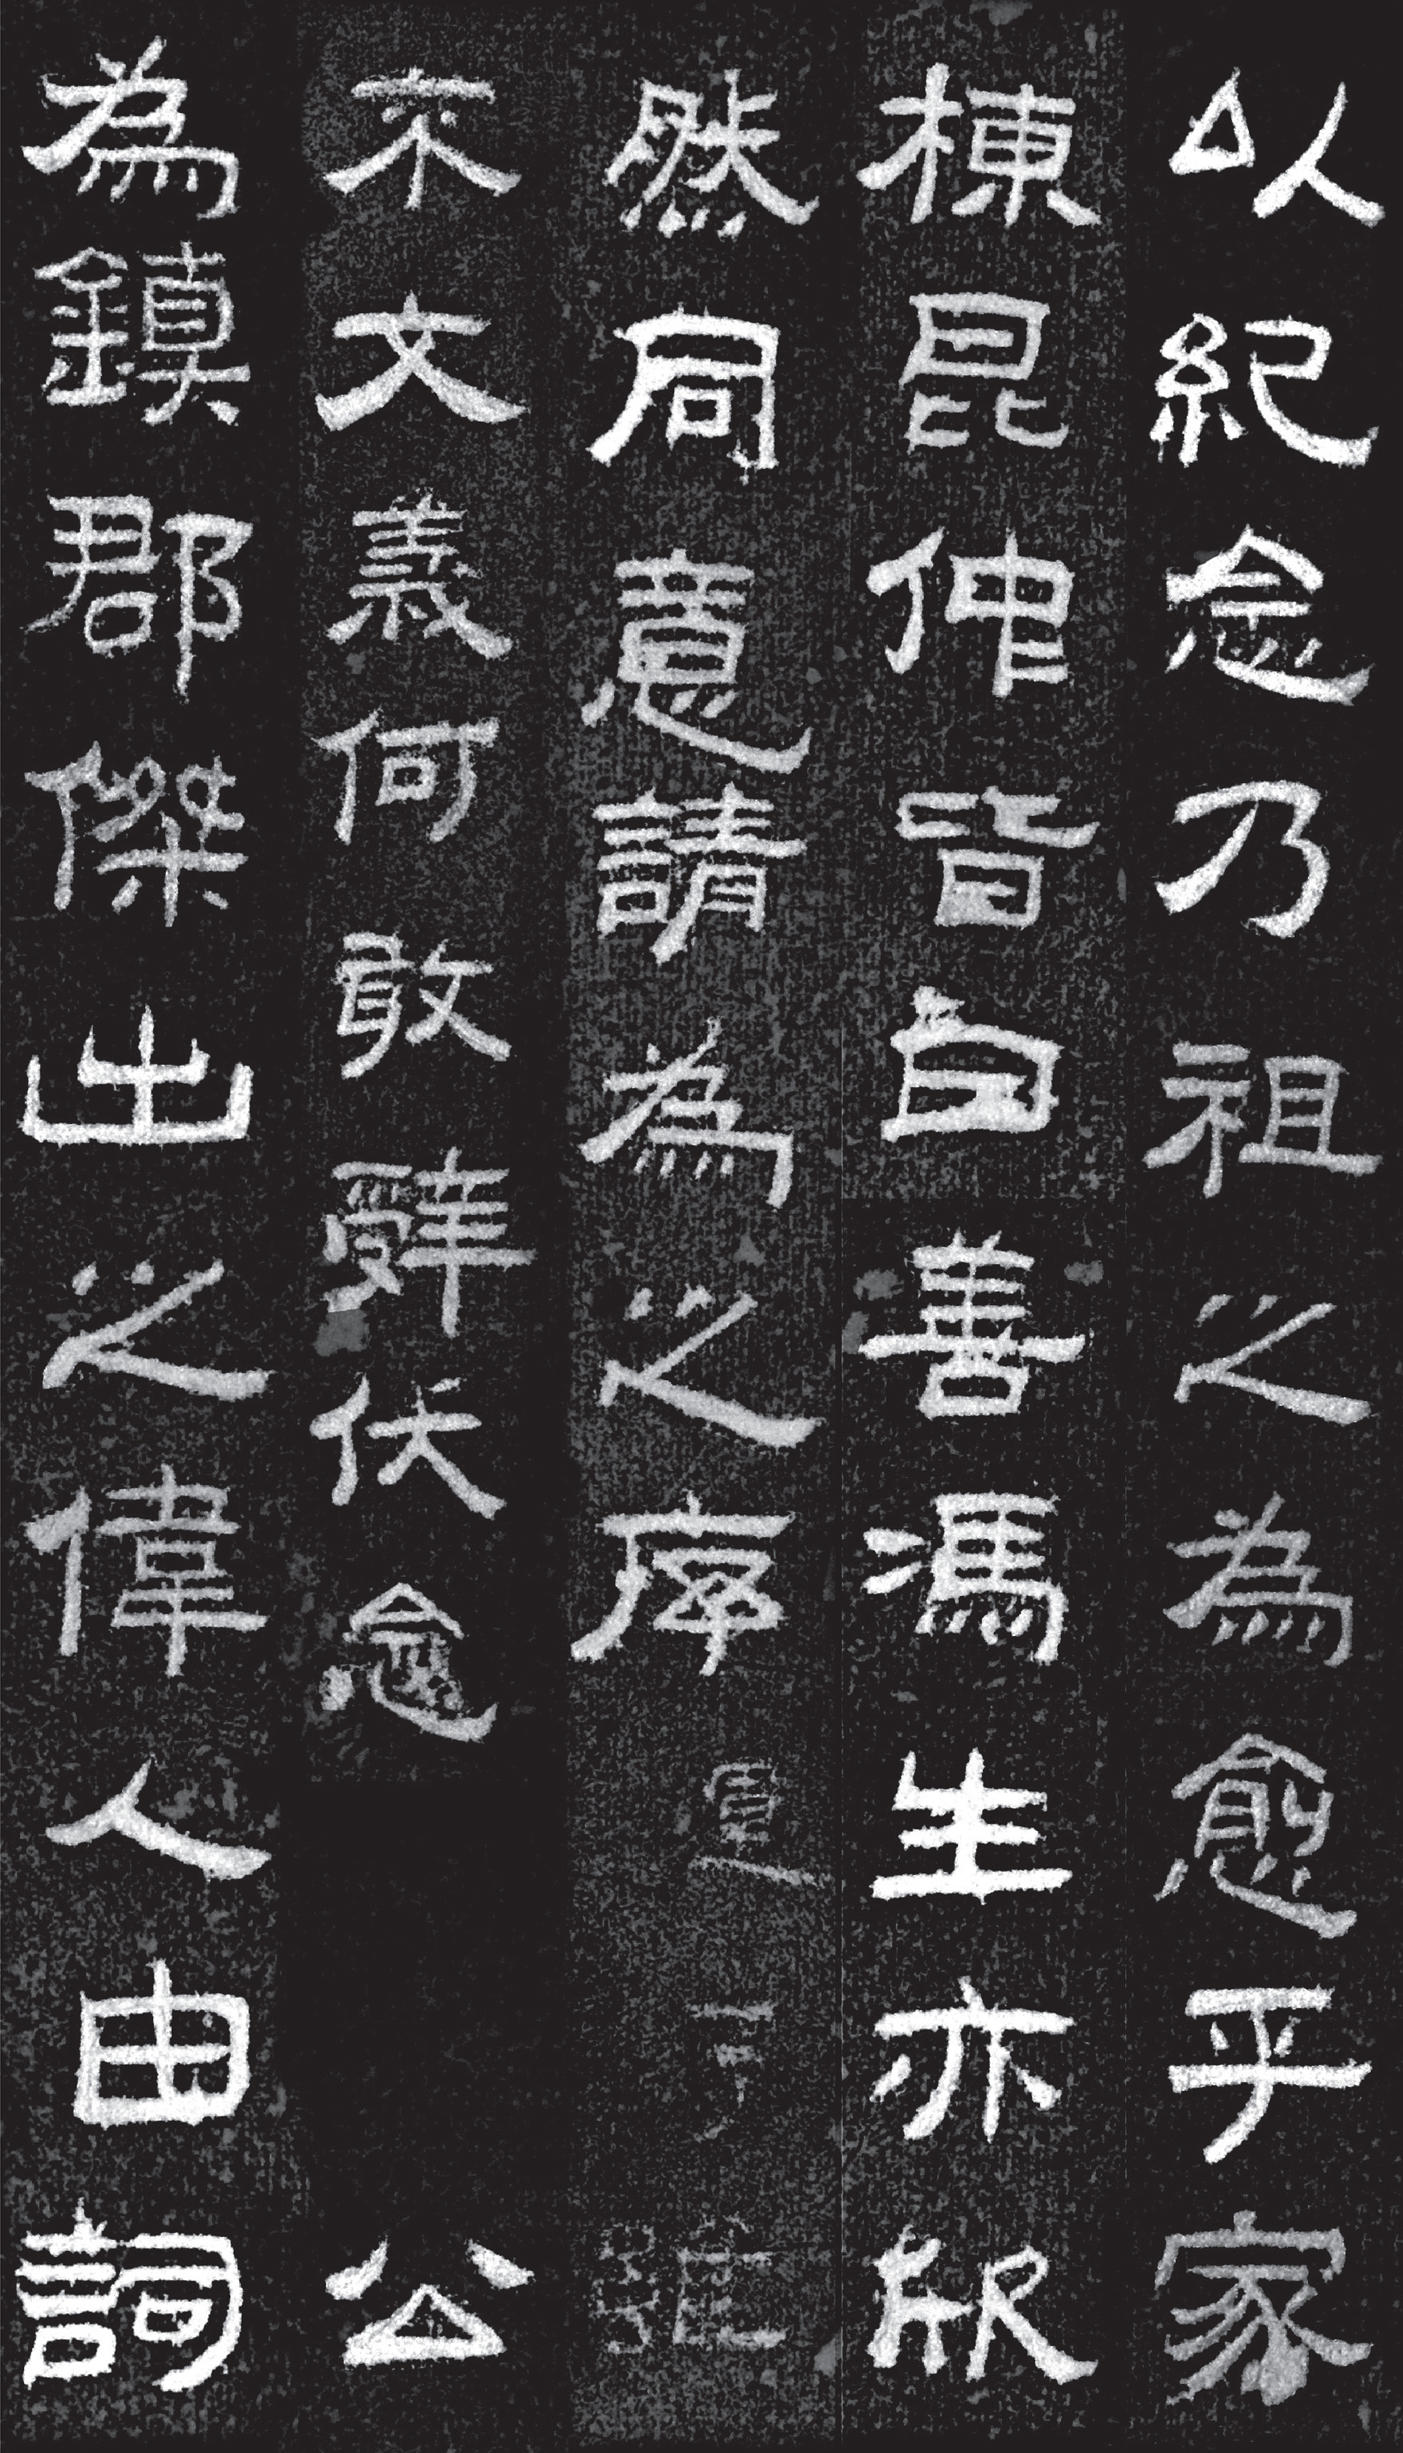 以紀念乃祖之為愈乎家
棟昆仲皆曰善馮生亦欣
然同意請為之序雖
不文義何敢辭伏念公
為鎮郡傑出之偉人由詞